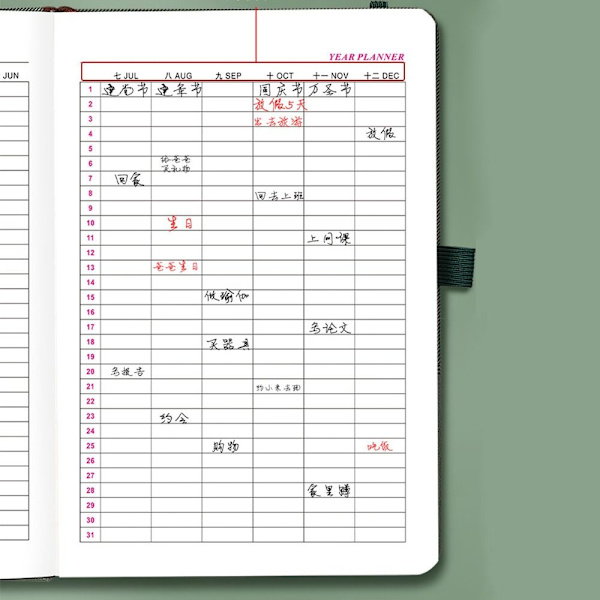 YEAR PLANNER
JUN 七 JUL 八 AUG 九 SEP 十 OCT 十一 NOV 十二 DEC
1 建党节 建军节 国庆节 万圣节
2 放假5天
3 出去旅游
4 放假
5
6 给爸爸
买礼物
7 回家
8 回去上班
9
10 生日
11 上网课
12
13 爸爸生日
14
15 做瑜伽
16
17 写论文
18 买器具
19
20 写报告
21 约小米去
22
23 约会
24
25 购物 吃饭
26
27
28 家里蹲
29
30
31